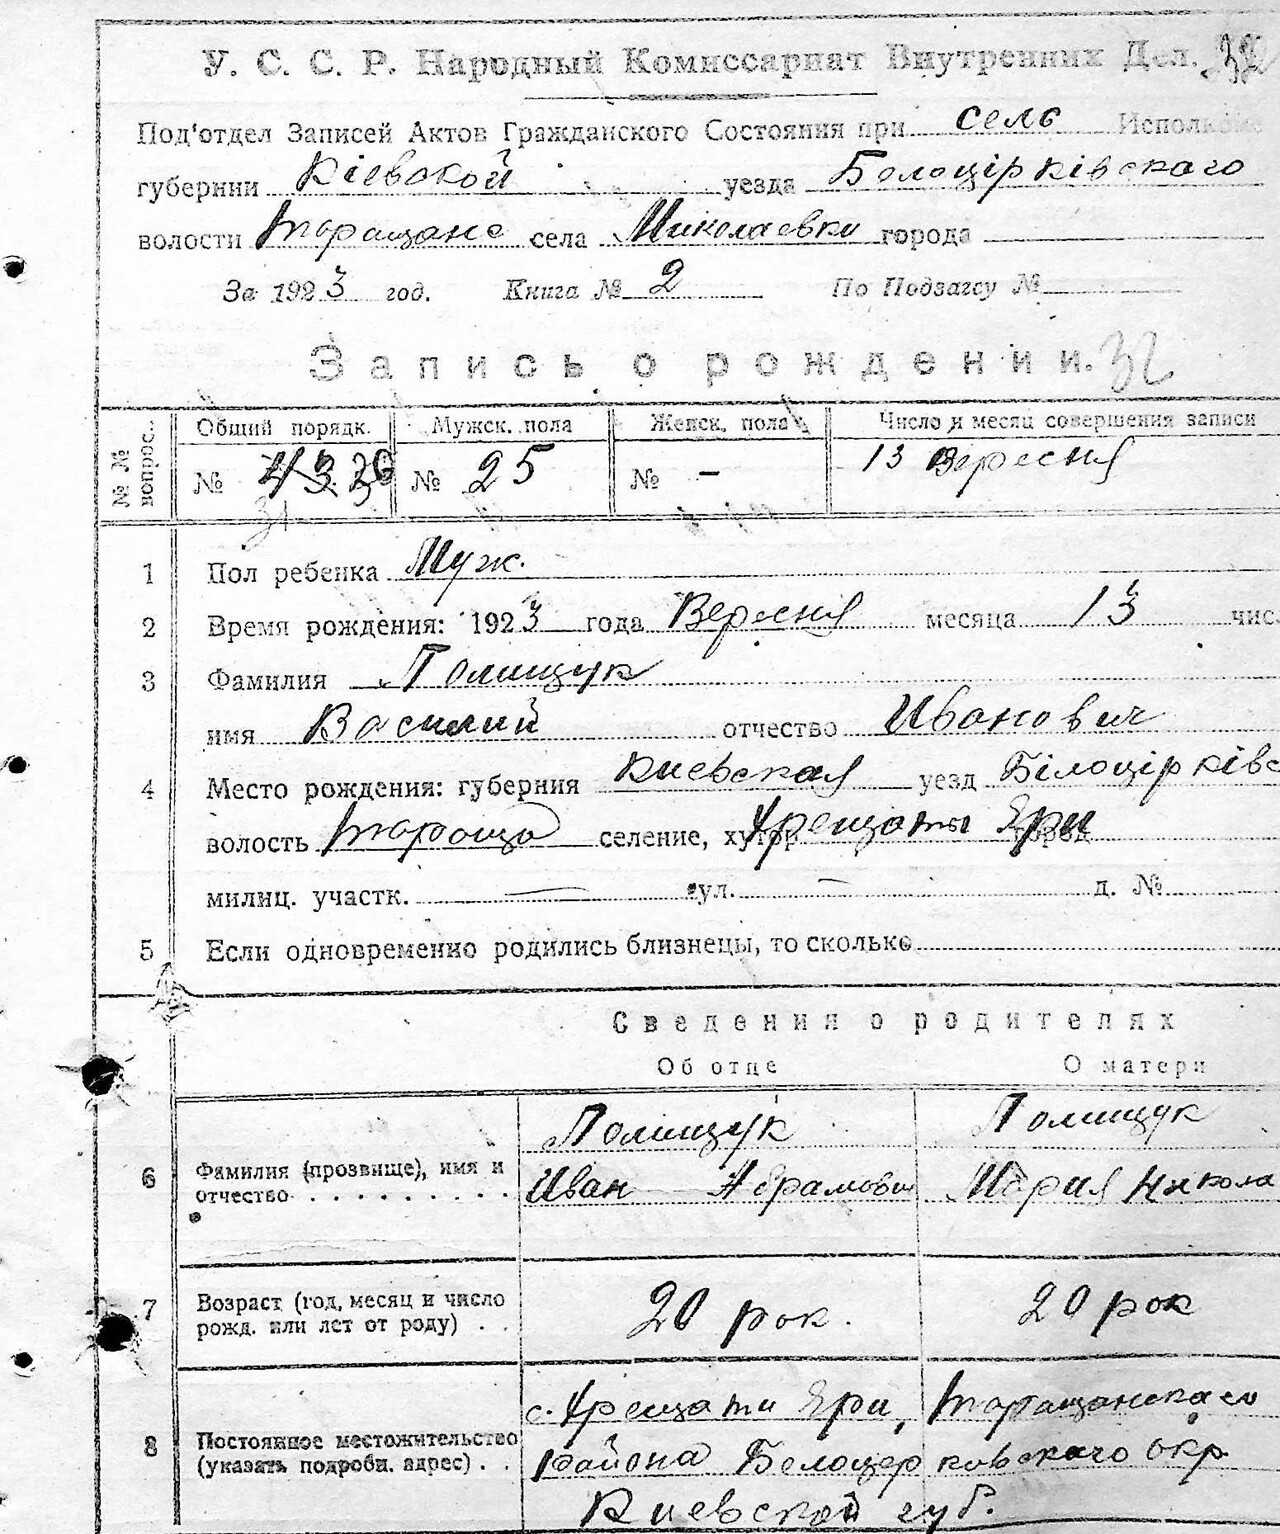 У. С. С. Р. Народный Комиссариат Внутренних Дел. 32
Под'отдел Записей Актов Гражданского Состояния при сель Исполкоме
губернии Кіевской уезда Белоцірківскаго
волости Таращанс села Николаевки города
За 1923 год. Книга № 2 По Подзагсу №
Запись о рождении. 32
№ № вопрос. Общий порядк. Мужск. пола Женск. пола Число и месяц совершения записи
№ № 25 № – 13 Вересня
31
1 Пол ребенка Муж.
2 Время рождения: 1923 года Вересня месяца 13 чис
3 Фамилия Полищук
имя Василий отчество Иванович
4 Место рождения: губерния Киевская уезд Білоцірківс
волость Тараща селение, хутор Хрещати Яри город
милиц. участк. — ул. – д. №
5 Если одновременно родились близнецы, то сколько
Сведения о родителях
Об отце О матери
Полищук Полищук
6 Фамилия (прозвище), имя и отчество Иван Абрамович Мария Никола
7 Возраст (год, месяц и число рожд. или лет от роду) 20 рок. 20 рок
с. Хрещати Яри, Таращанскаго
8 Постоянное местожительство (указать подробн. адрес) района Белоцерковскаго окр
Киевской губ.